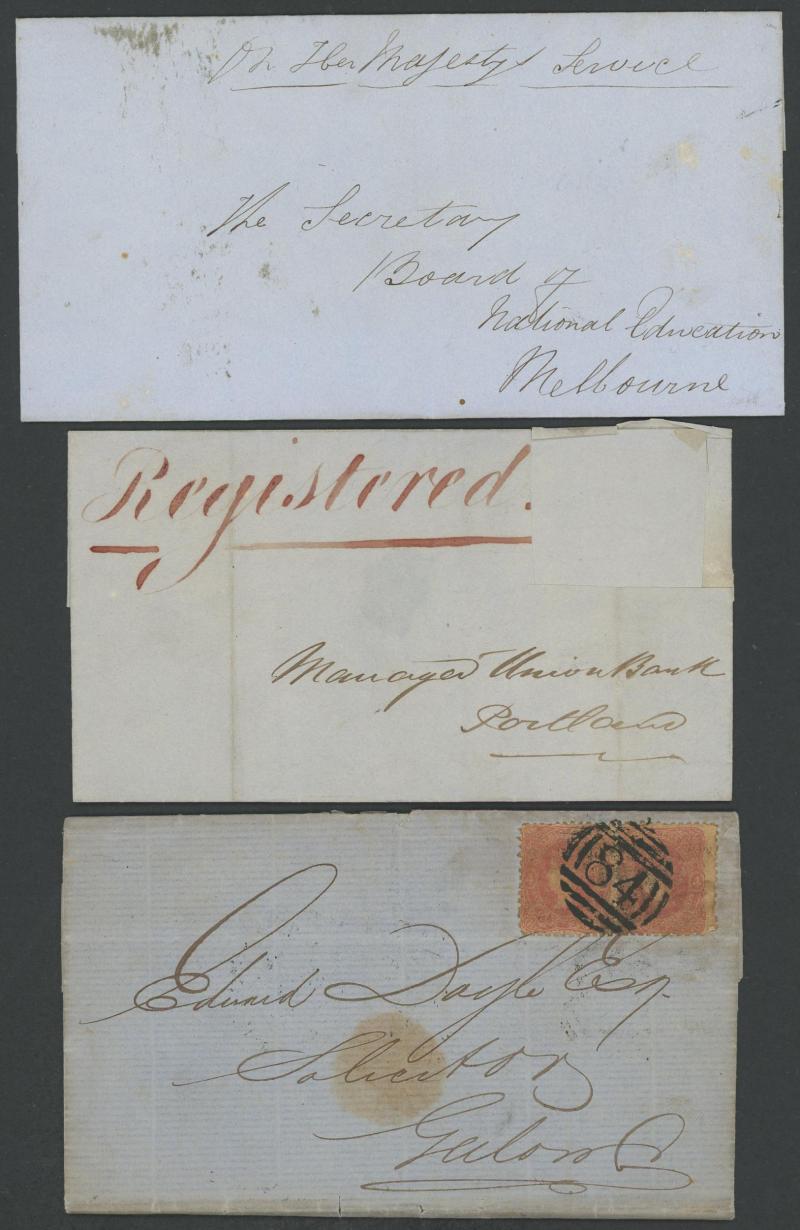 On Her Majestys Service
The Secretary
Board of
National Education
Melbourne
Registered.
Manager Union Bank
Portland
84
Edward Doyle Esq.
Solicitor
Geelong